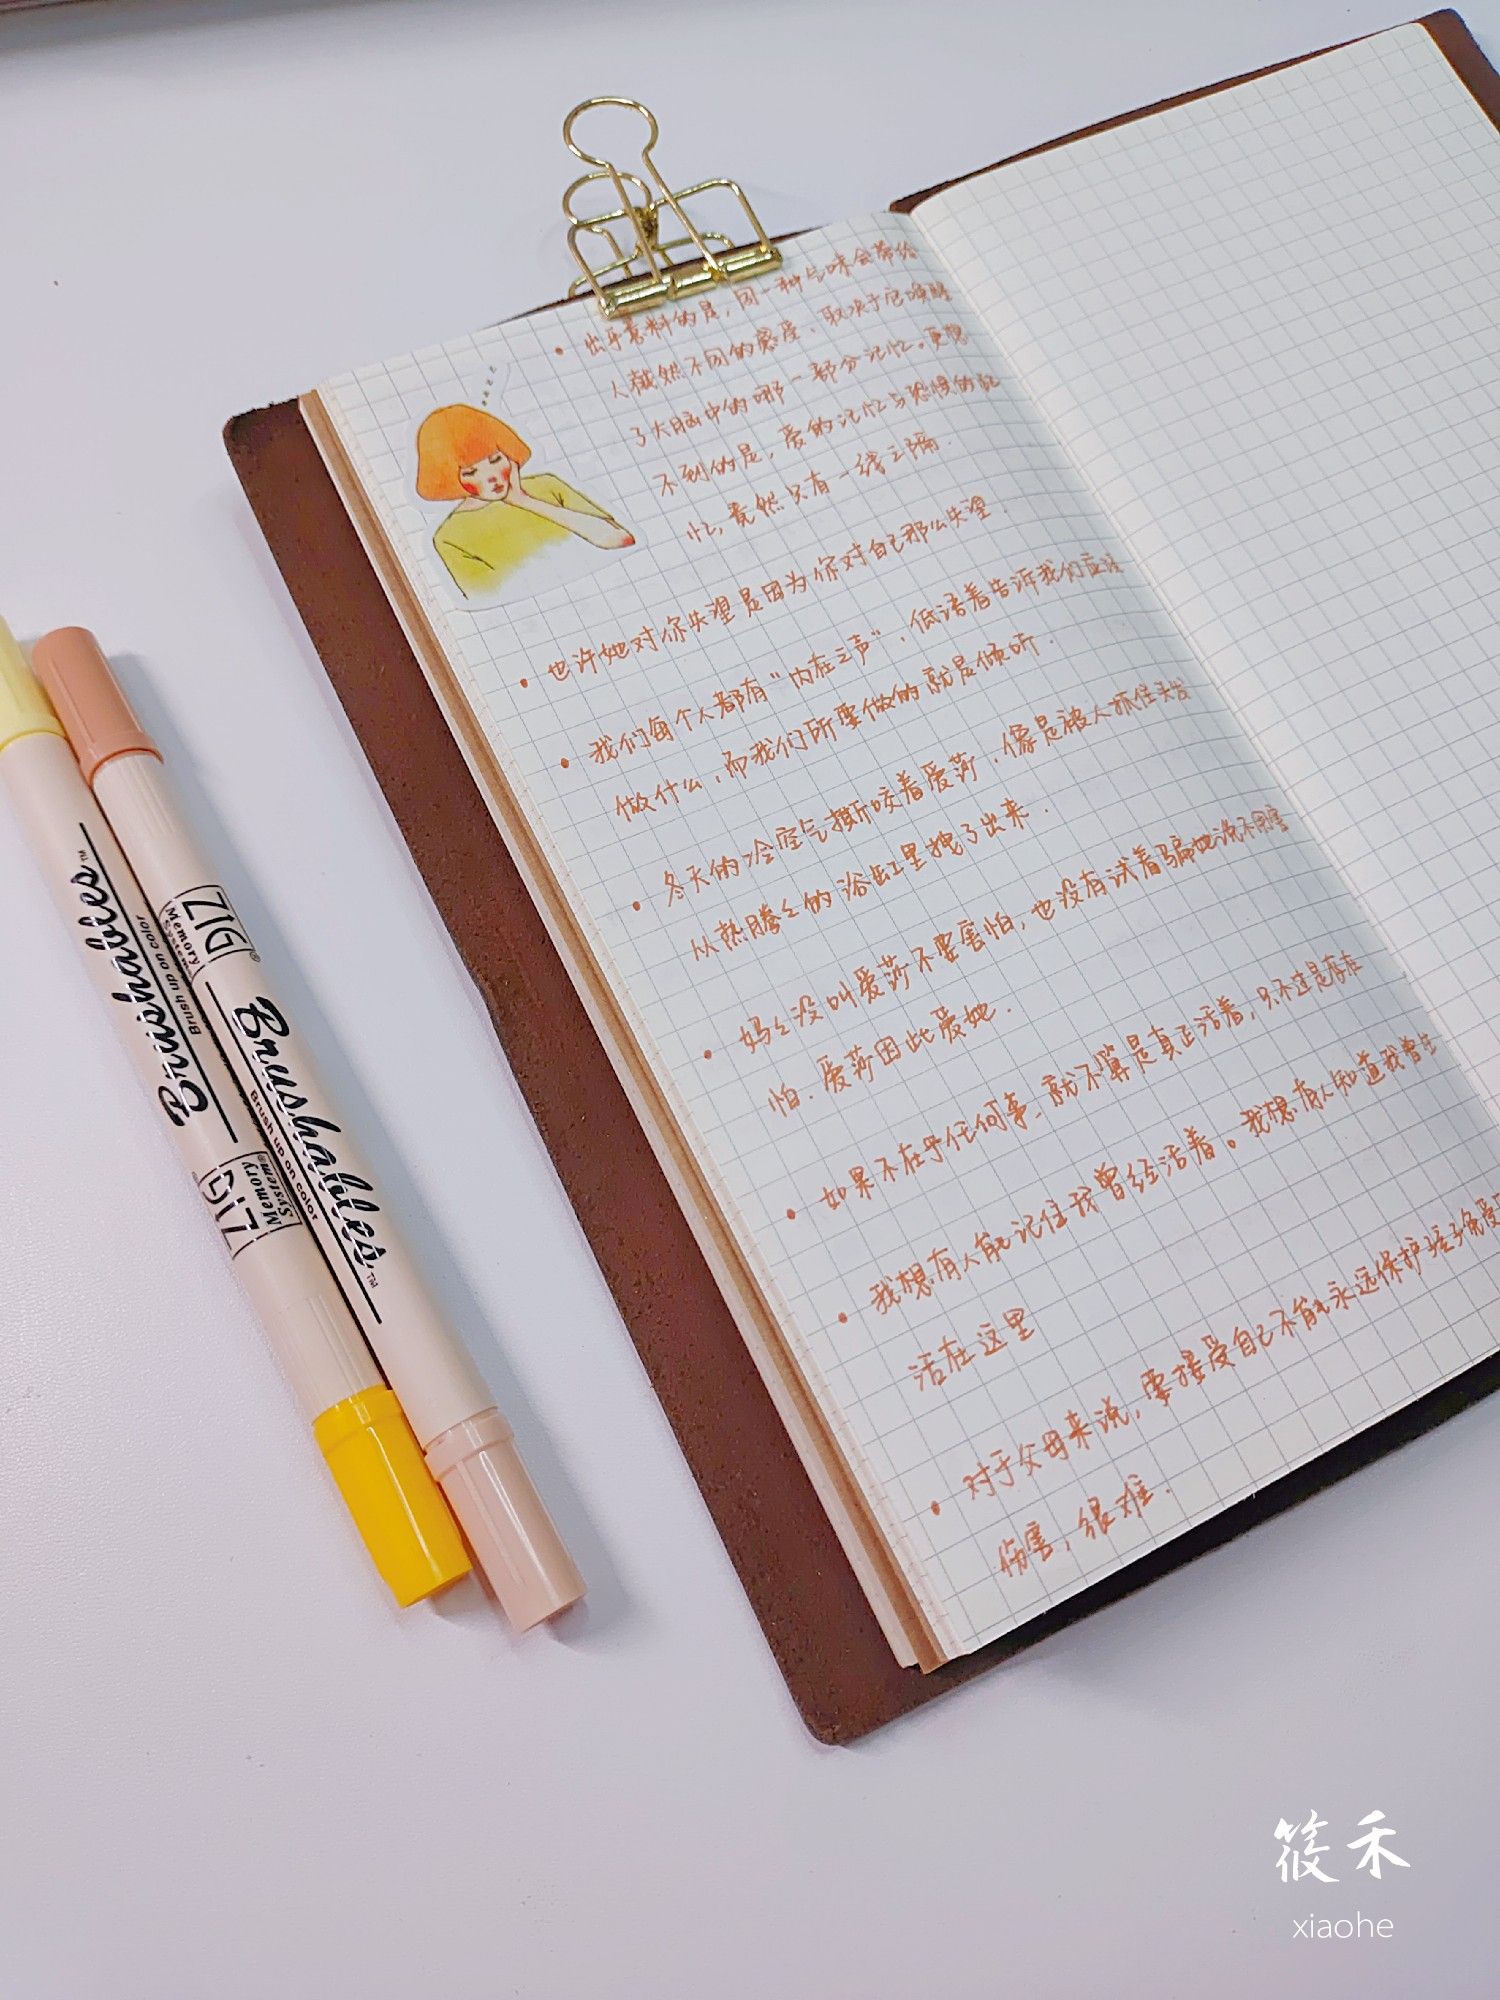 出乎意料的是，同一种气味会带给
人截然不同的感受，取决于它唤醒
了大脑中的哪一部分记忆。更想
不到的是，爱的记忆与恐惧的记
忆，竟然只有一线之隔．
也许她对你失望是因为你对自己那么失望．
我们每个人都有"内在之声"，低语着告诉我们应该
做什么，而我们所要做的就是倾听．
冬天的冷空气撕咬着爱莎，像是被人抓住头发
从热腾々的浴缸里拽了出来．
妈々没叫爱莎不要害怕，也没有试着骗她说不用害
怕．爱莎因此爱她．
如果不在乎任何事，就不算是真正活着，只不过是存在
我想有人能记住我曾经活着。我想有人知道我曾生
活在这里
对于父母来说，要接受自己不能永远保护孩子免受
伤害，很难．
Brushables™
Brush up on color
ZIG
Memory System®
Brushables™
Brush up on color
ZIG®
Memory System
筱禾
xiaohe